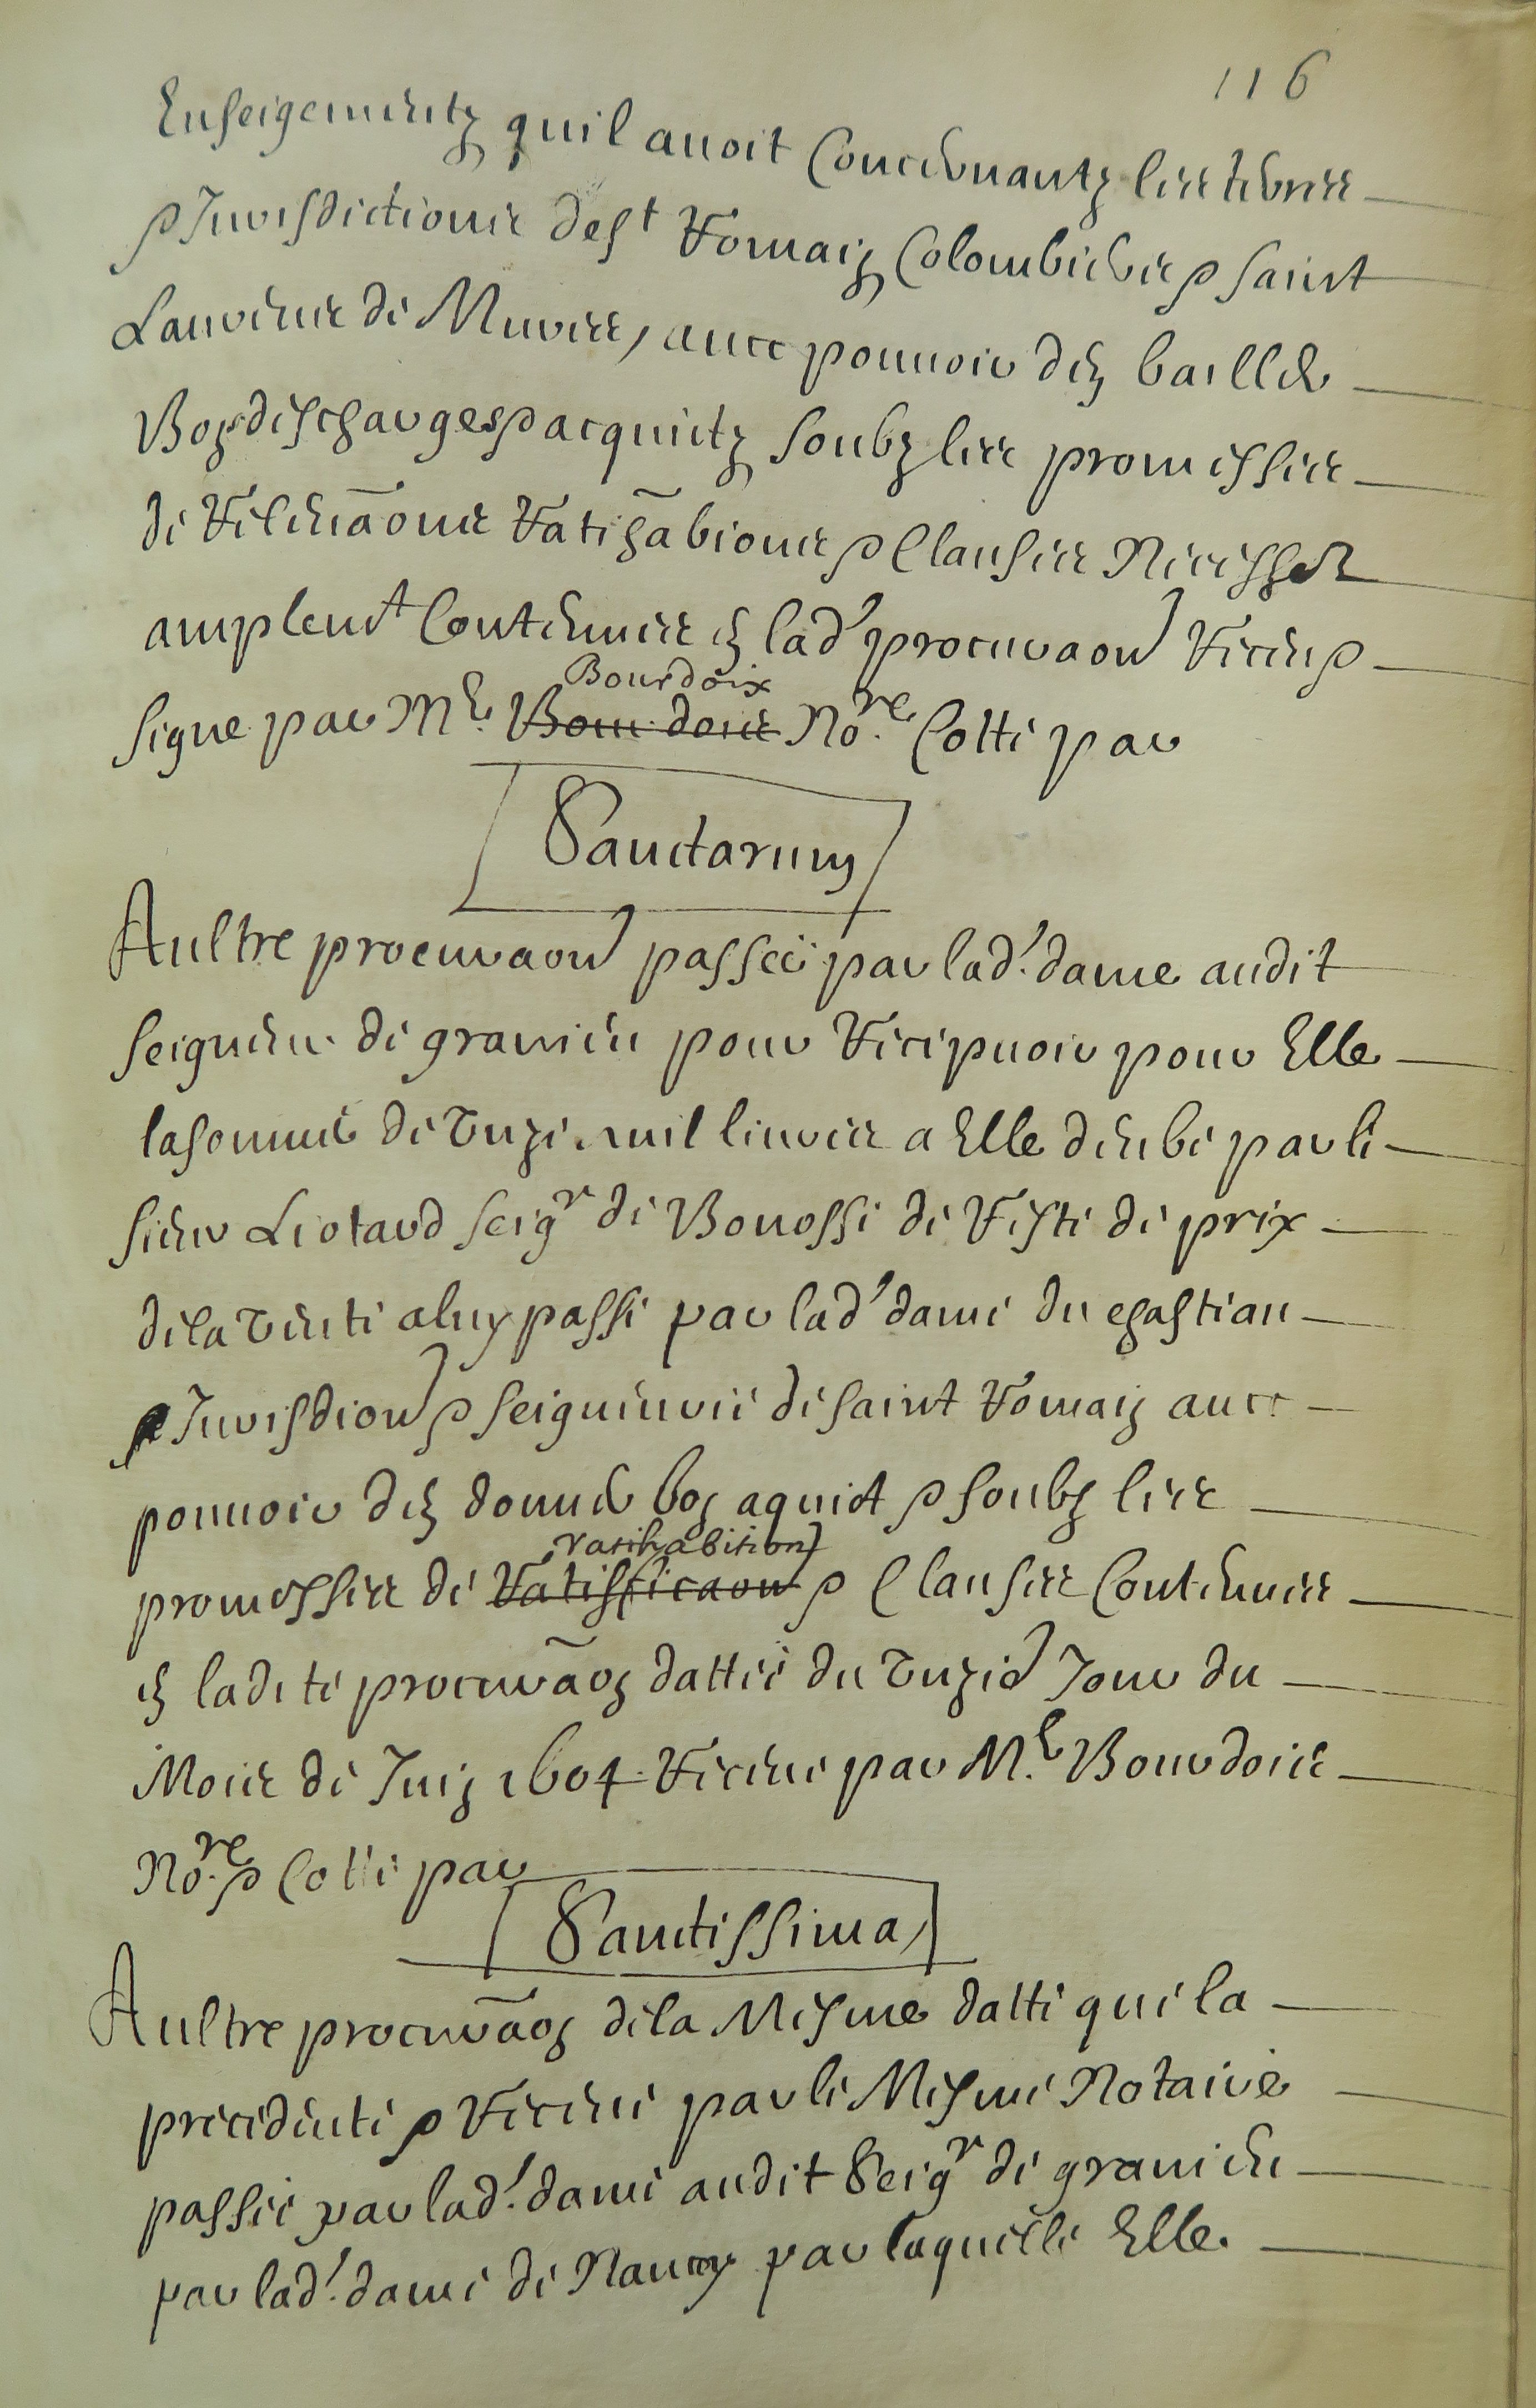 116
Enseigementz quil avoit Concernantz les terres
& Jurisdictions de st Romain Colombier & saint
Laurens de Mures, avec pouvoir den bailler
Bon descharges & acquietz soubz les promesses
de rellevãons ratihãbions & Clauses Necessres
amplemt Contenues en lad' procuraon Receu &
signe par Mr. Bourdois Nore. Cotté par
Bourdoix
Sanctarum
Aultre procuraon passée par lad'. dame audit
seigneur de gravieu pour Recepvoir pour Elle
la somme de Unze mil livres a Elle deube par le
sieur Liotard seigr de Bonosse de Reste de prix
de la vente a luy passé par lad' dame du chasteau
& Jurisdion & seigneurie de saint Romain avec
pouvoir den donner bon aquict & soubz les
promesses de Ratifficaon & Clauses Contenues
ratihabition
en ladite procurãon dattée du Unzie Jour du
Mois de Juin 1604 Receue par Mr. Bourdois
Nore. & Cotté par
Sanctissima
Aultre procurãon de la Mesme datte que la
precedente & Receue par le Mesme Notaire
passée par lad'. dame audit Seigr de gravieu
par lad'. dame de Nancy par laquelle Elle